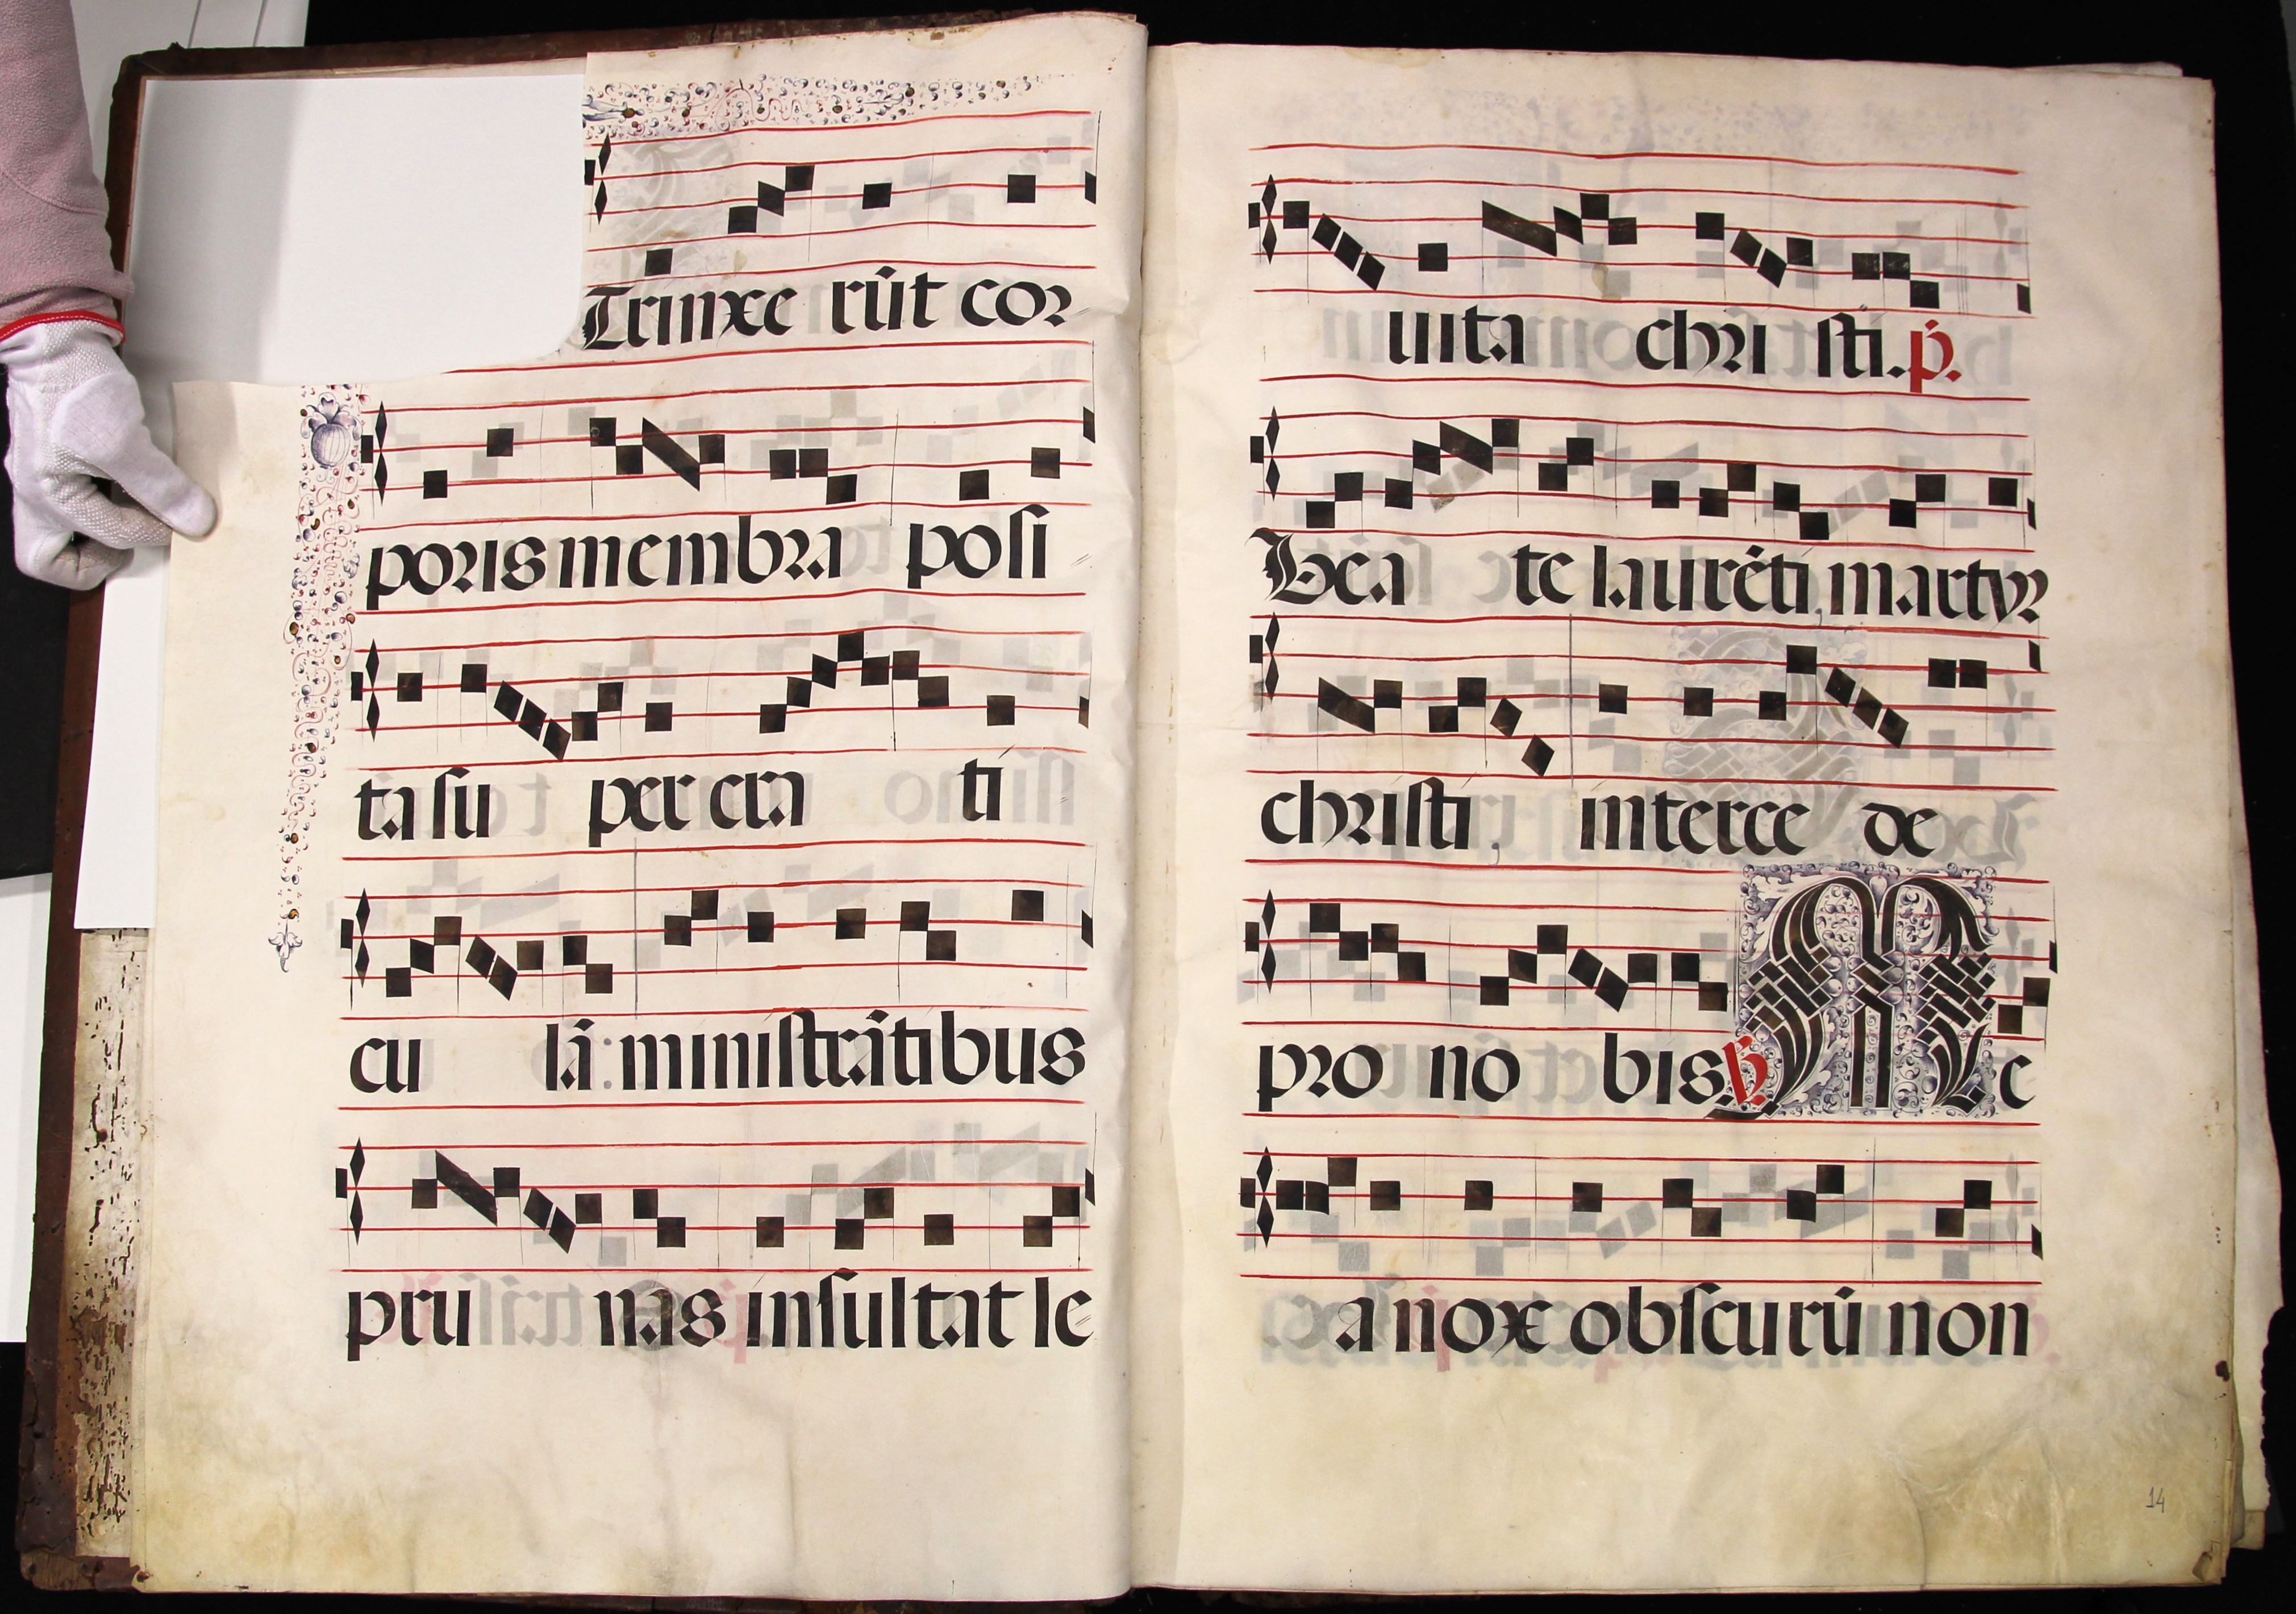 Trinxe rūt cor
poris membra posi
ta su per cra ti
cu lā: ministrātibus
pru nas insultat le
uita chri sti. p̄.
Bea te laurēti, martyr
christi, interce de
pro no bis. ℟ M e
a nox obscurū non
14